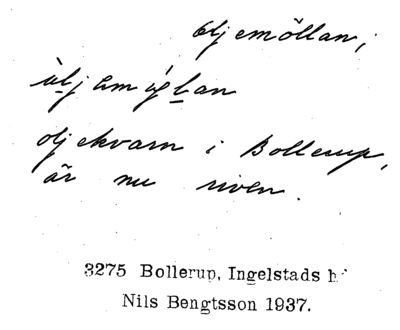 oljemöllan,
oljekvarn i Bollerup,
är nu riven.
3275 Bollerup, Ingelstads h
Nils Bengtsson 1937.